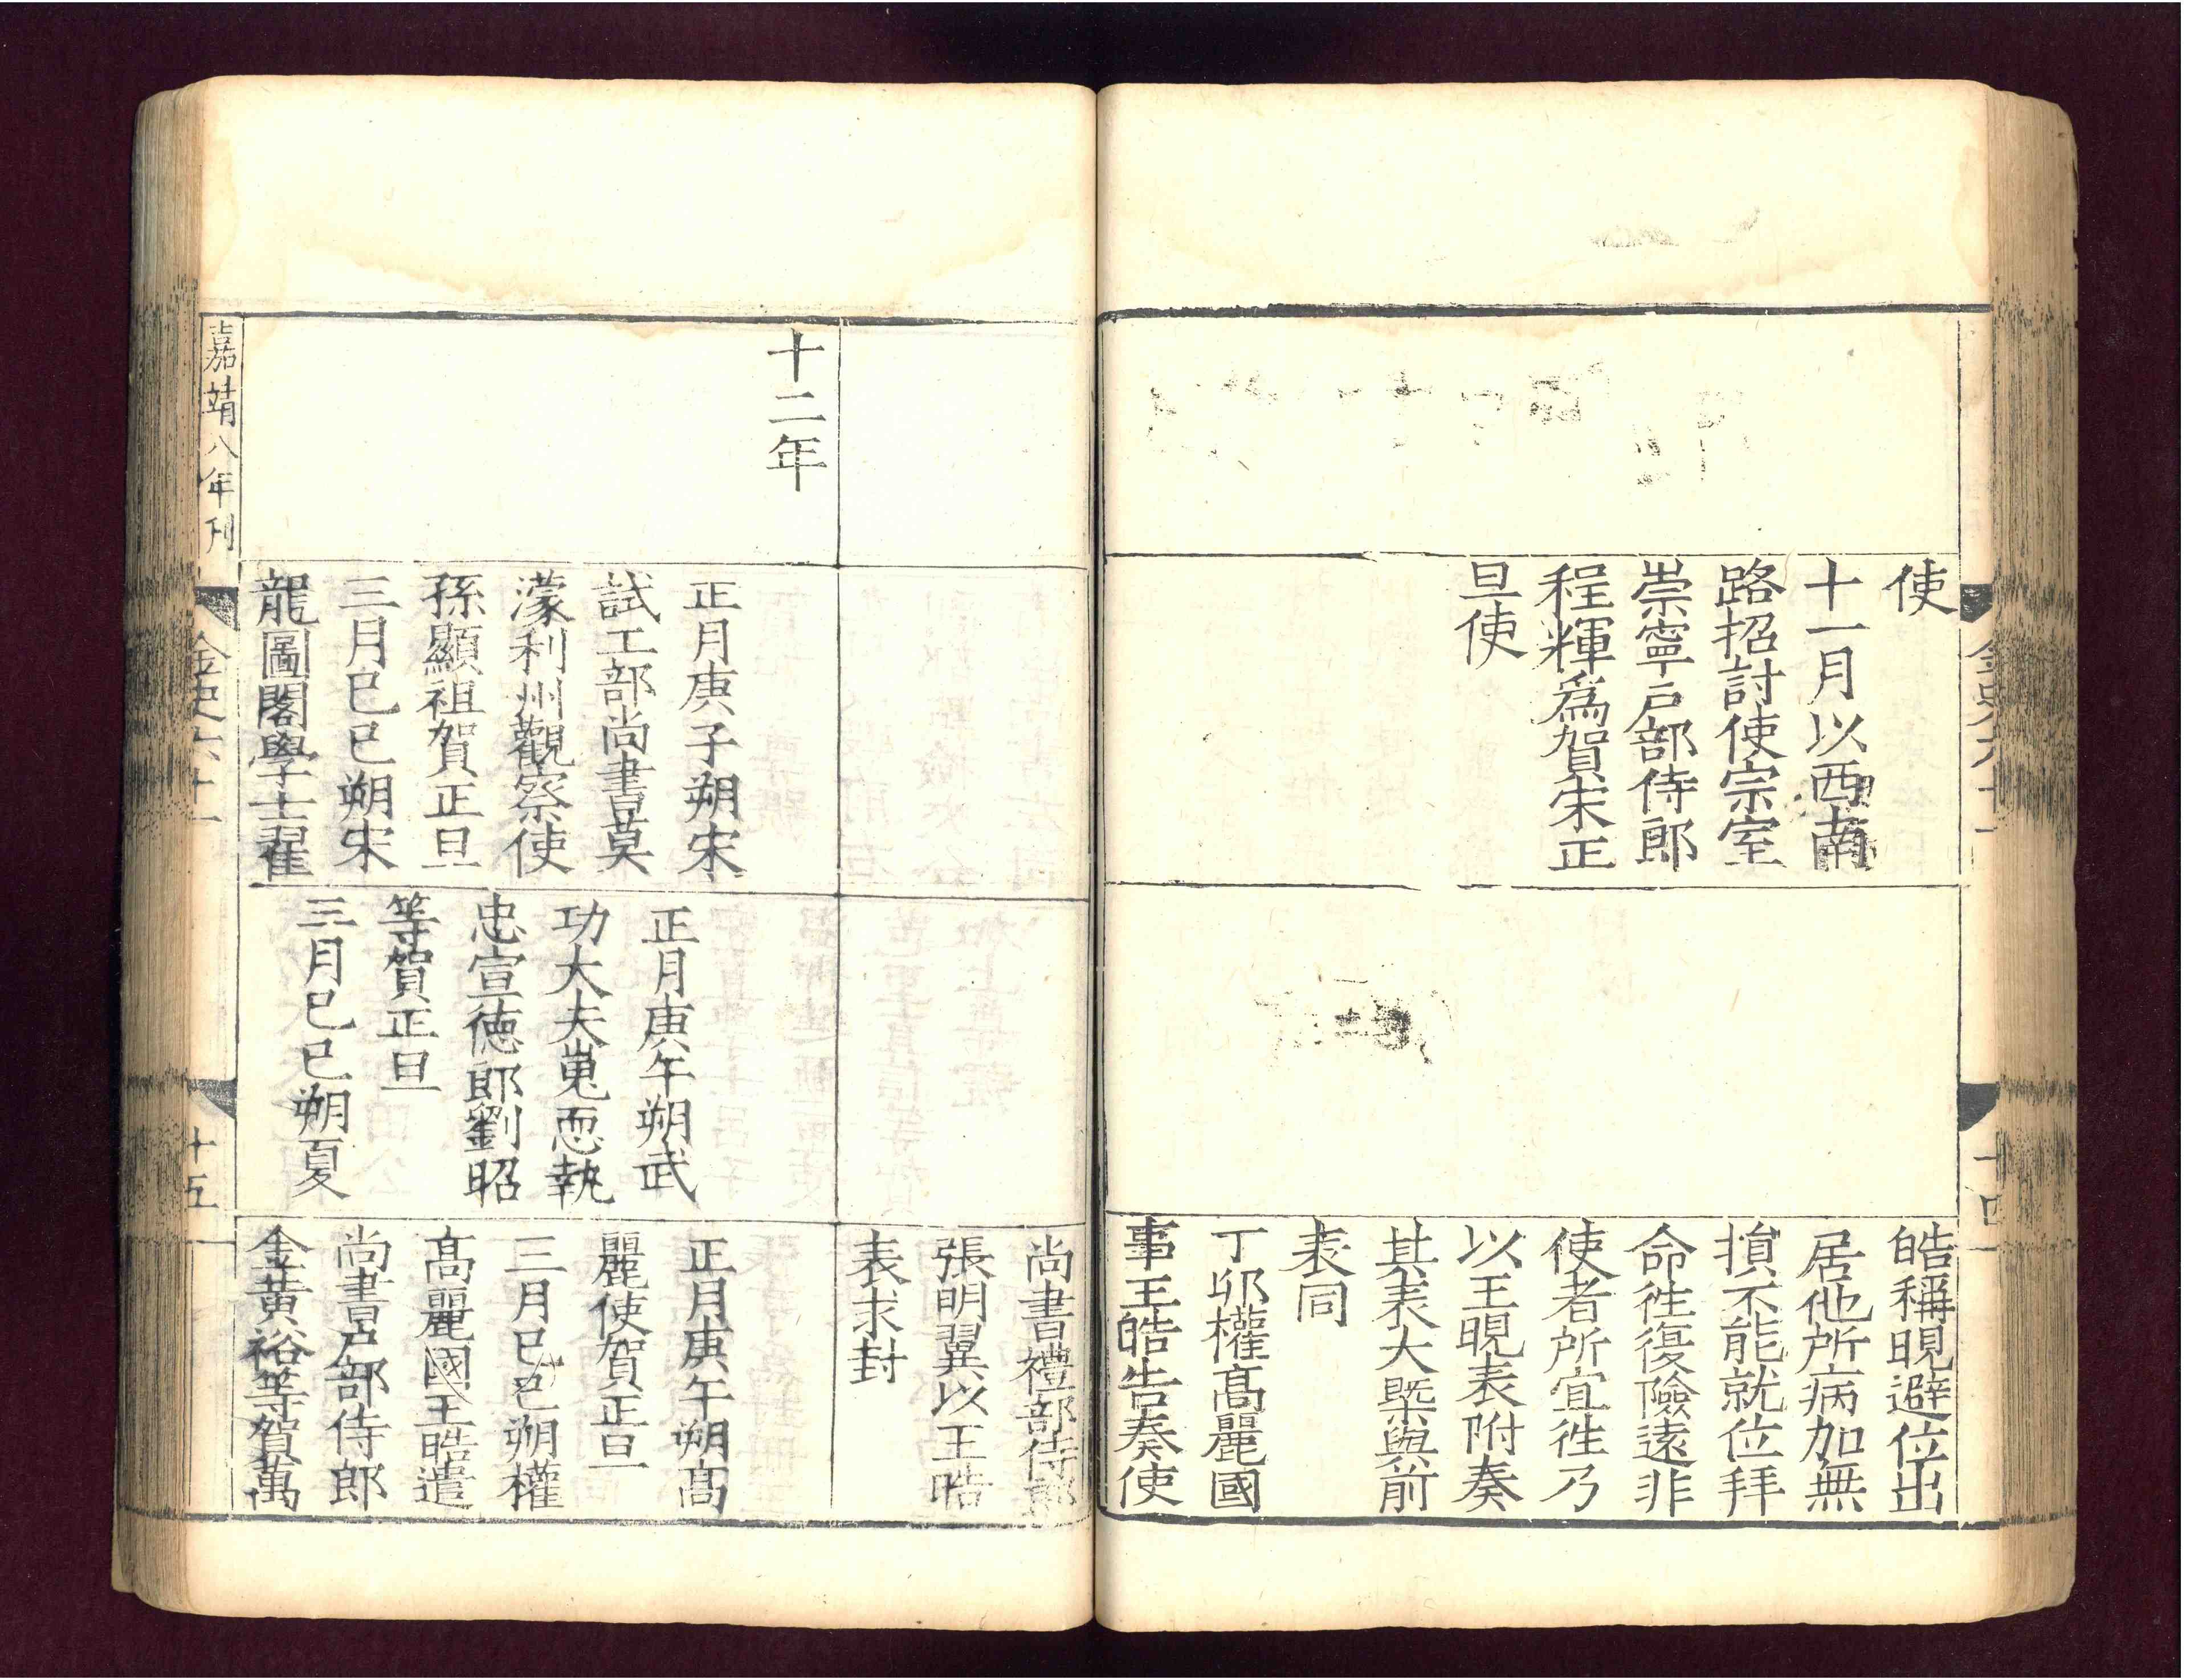 使
十一月以西南
路招討使宗室
崇寧戶部侍郎
程輝爲賀宋正
旦使
皓稱晛避位出
居他所病加無
損不能就位拜
命徃復險遠非
使者所宜徃乃
以王晛表附奏
其表大槩與前
表同
丁卯權髙麗國
事王皓告奏使
金史六十一
十四
尚書禮部侍郎
張明翼以王晧
表求封
十二年
正月庚子朔宋
試工部尚書莫
濛利州觀察使
孫顯祖賀正旦
三月巳巳朔宋
龍圖閣學士翟
正月庚午朔武
功大夫嵬恧執
忠宣徳郎劉昭
等賀正旦
三月巳巳朔夏
正月庚午朔髙
麗使賀正旦
三月巳巳朔權
髙麗國王晧遣
尚書戶部侍郎
金黃裕等賀萬
嘉靖八年刋
金史六十一
十五